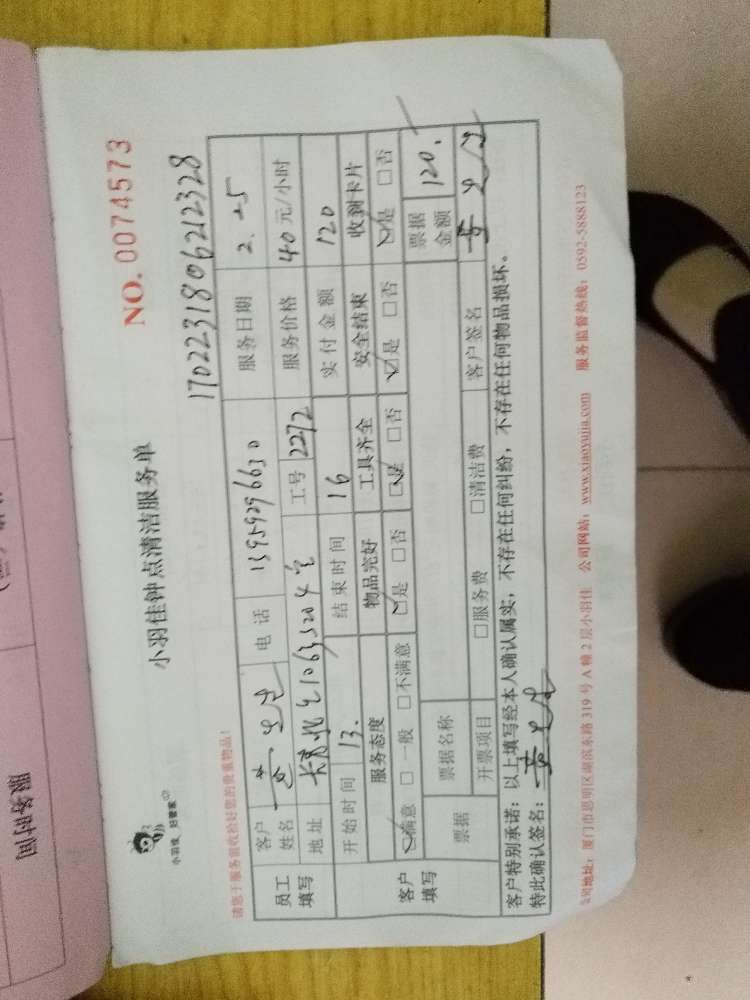 服务时间
小羽佳 好管家
小羽佳钟点清洁服务单
NO. 0074573
1702231806212328
请您于服务前收拾好您的贵重物品！
员工填写
客户姓名
电话 13959296630
服务日期 2.25
地址
工号 2272
服务价格 40元/小时
开始时间 13.
结束时间 16
实付金额 120
客户填写
服务态度 物品完好 工具齐全 安全结束 收到卡片
☑满意 □一般 □不满意 ☑是 □否 ☑是 □否 ☑是 □否 ☑是 □否
票据 票据名称 票据金额 120.
开票项目 □服务费 □清洁费 客户签名
客户特别承诺：以上填写经本人确认属实，不存在任何纠纷，不存在任何物品损坏。
特此确认签名：
公司地址：厦门市思明区湖滨东路319号A幢2层小羽佳 公司网站：www.xiaoyujia.com 服务监督热线：0592-5888123